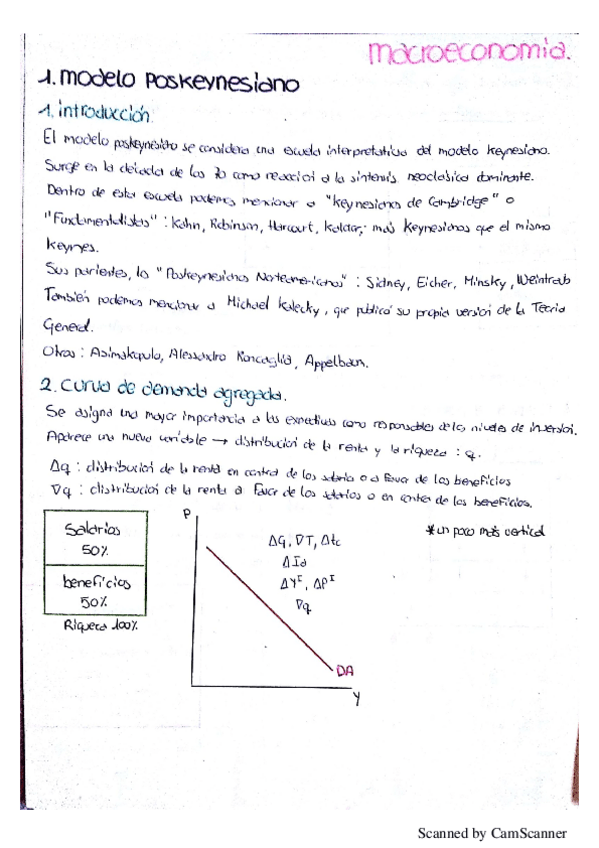 macroeconomia.
1. modelo poskeynesiano
1. introducción
El modelo poskeynesiano se considera una escuela interpretativa del modelo keynesiano.
Surge en la década de los 70 como reacción a la síntesis neoclásica dominante.
Dentro de esta escuela podemos mencionar a "keynesianos de Cambridge" o
"Fundamentalistas" : Kahn, Robinson, Harcourt, Kaldor; más keynesianos que el mismo
Keynes.
Sus parientes, los "Poskeynesianos Norteamericanos" : Sidney, Eicher, Minsky, Weintrab
También podemos mencionar a Michael Kalecky, que publicó su propia versión de la Teoría
General.
Otros : Asimakopulo, Alessandro Roncaglia, Appelbaun.
2. Curva de demanda agregada.
Se asigna una mayor importancia a las expectativas como responsables de los niveles de inversión.
Aparece una nueva variable → distribución de la renta y la riqueza : q.
Δq : distribución de la renta en contra de los salarios o a favor de los beneficios
∇q : distribución de la renta a favor de los salarios o en contra de los beneficios.
Salarios
50%
beneficios
50%
Riqueza 100%
P
ΔG, ∇T, Δtc
ΔId
ΔY^I, ΔP^I
∇q
DA
Y
*un poco más vertical
Scanned by CamScanner